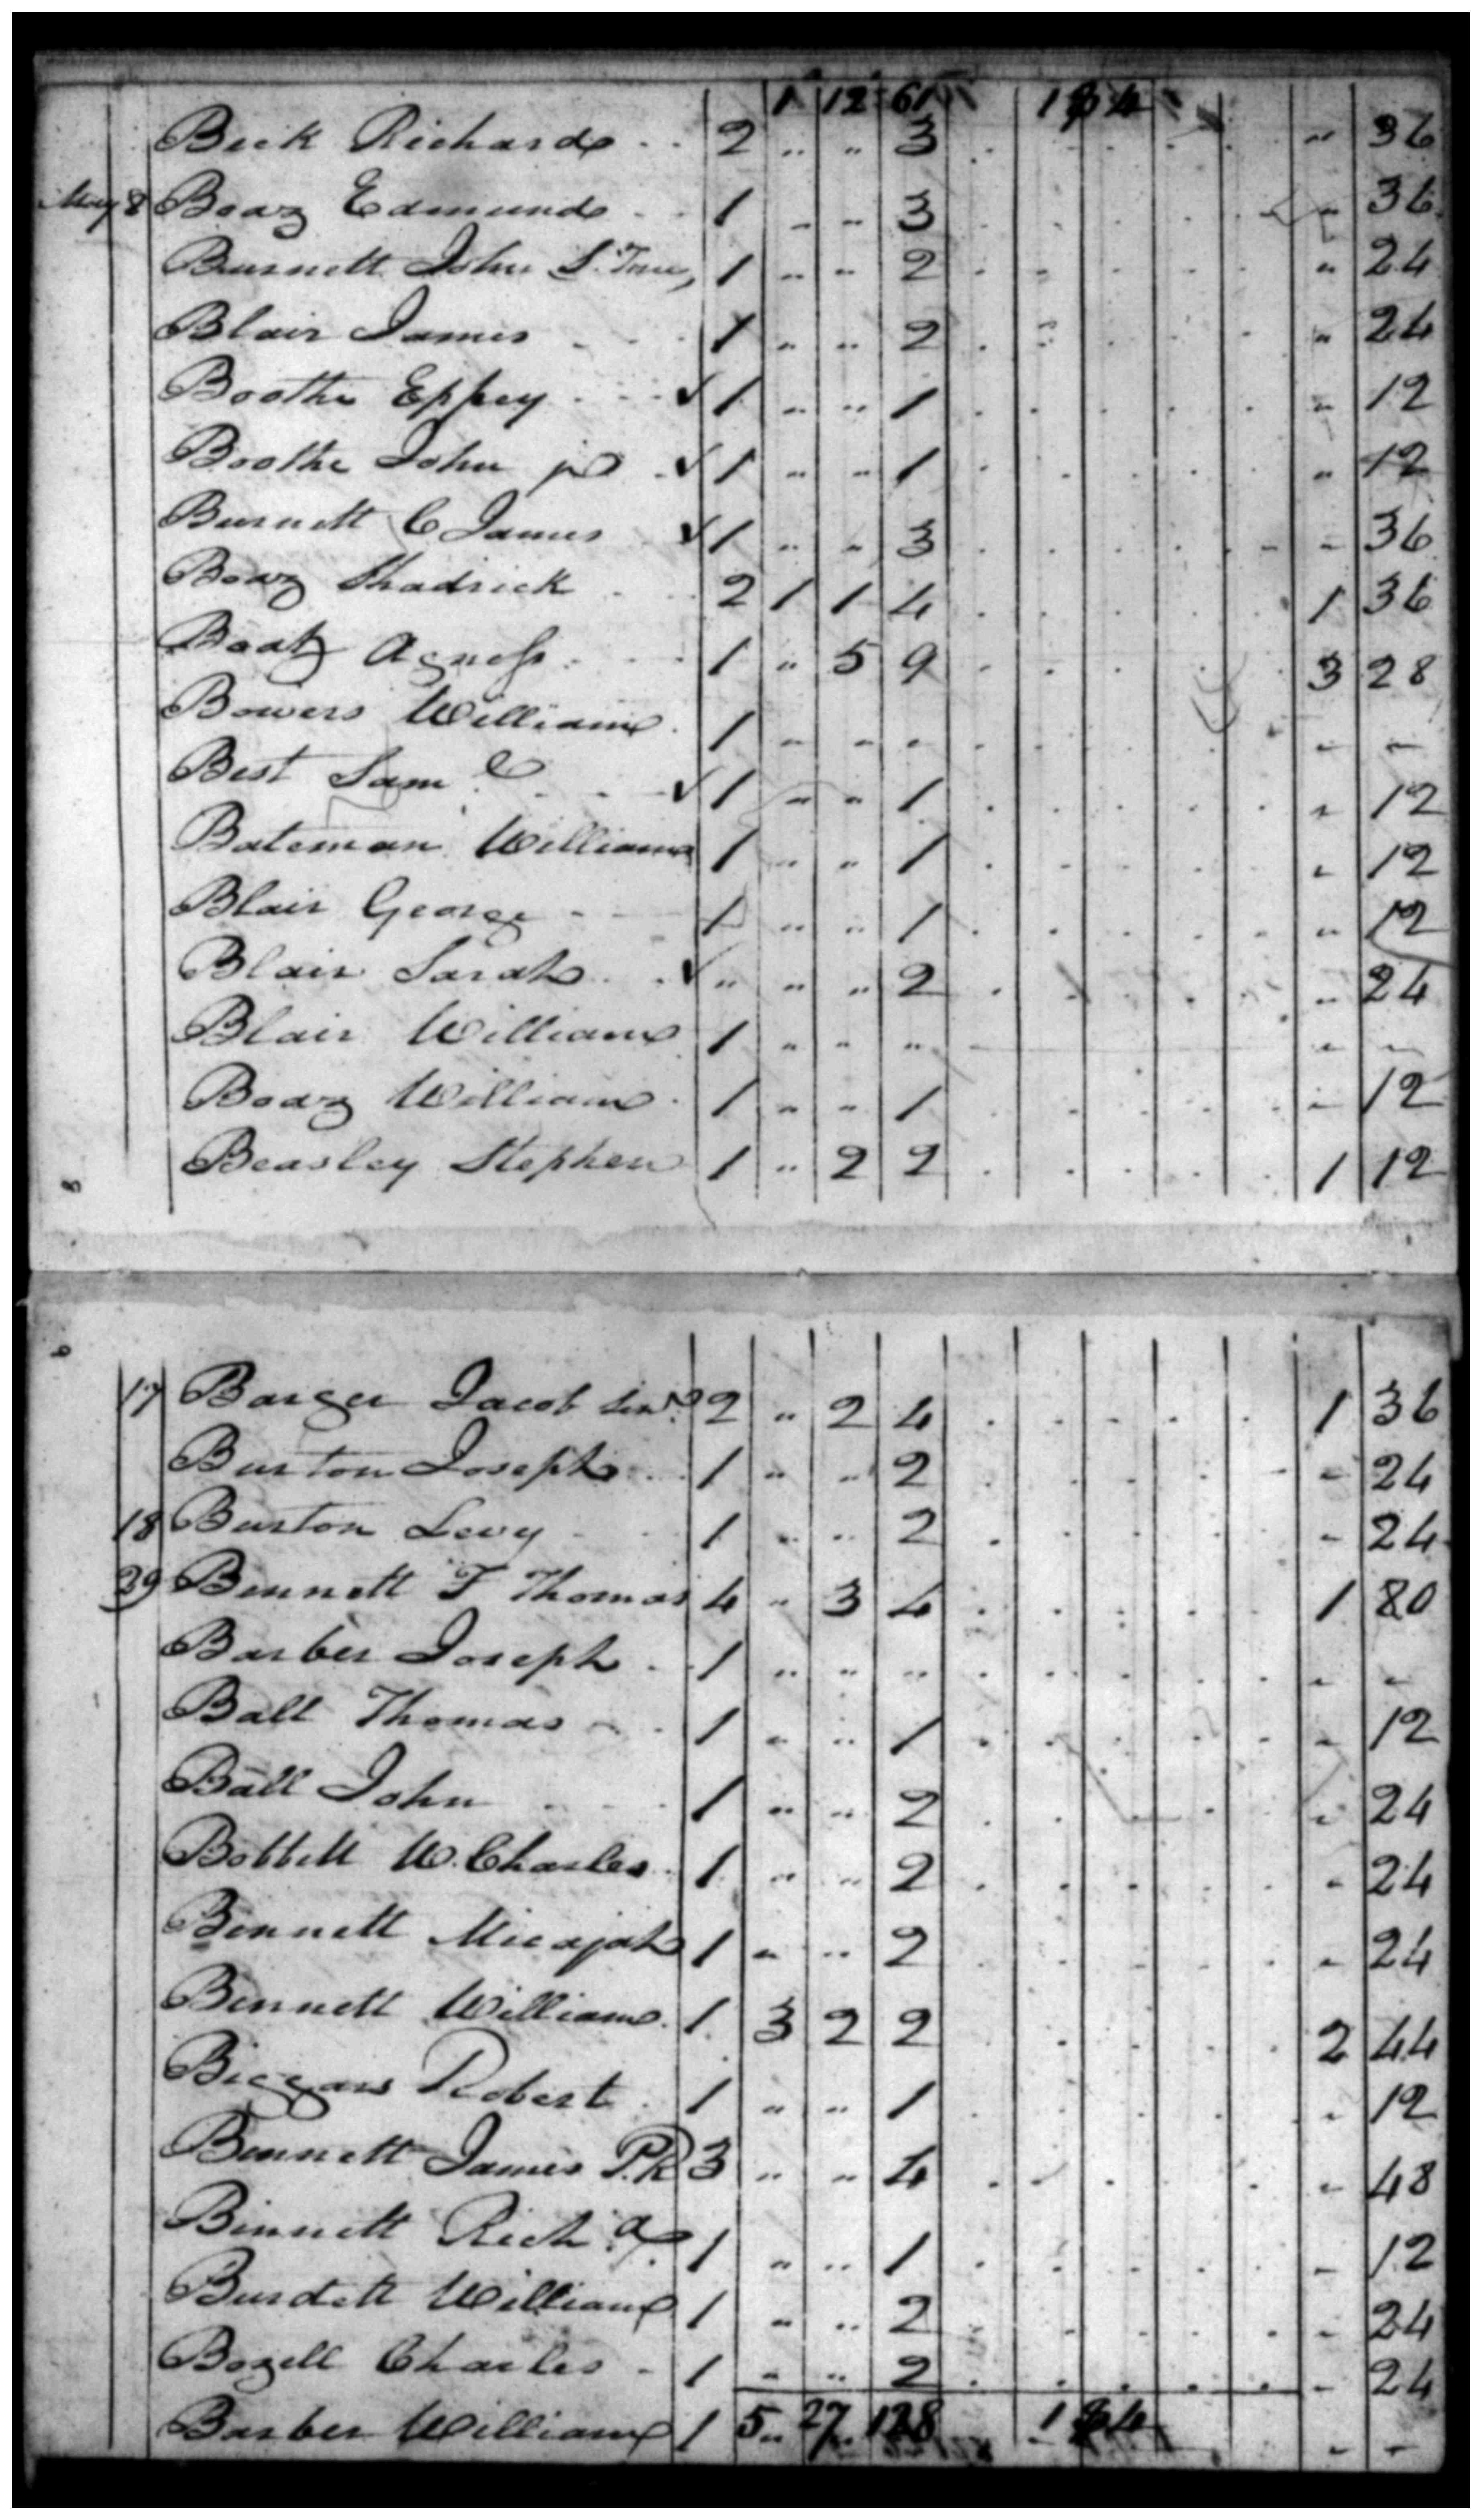 1 12 61
Beck Richard 2 " " 3 " 36
May 8 Boaz Edmund 1 " " 3 " 36
Burnett John S. 1 " " 2 " 24
Blair James 1 " " 2 " 24
Boothe Eppey ✓ 1 " " 1 " 12
Boothe John jr ✓ 1 " " 1 " 12
Burnett C James ✓ 1 " " 3 " 36
Boaz Shadrick 2 1 1 4 1 36
Boatz Agness 1 " 5 9 3 28
Bowers William 1 - - - - -
Best Saml ✓ 1 " " 1 " 12
Bateman William 1 " " 1 " 12
Blair George 1 " " 1 " 12
Blair Sarah ✓ " " " 2 " 24
Blair William 1 " " " " -
Boaz William 1 " " 1 - 12
Beasley Stephen 1 " 2 2 1 12
17 Barger Jacob senr 2 " 2 4 1 36
Burton Joseph 1 " " 2 - 24
18 Burton Levy 1 " " 2 - 24
29 Bennett T Thomas 4 " 3 4 1 80
Barber Joseph 1 " " " - -
Ball Thomas 1 " " 1 - 12
Ball John 1 " " 2 - 24
Bobbett W. Charles 1 " " 2 - 24
Bennett Micajah 1 " " 2 - 24
Bennett William 1 3 2 2 2 44
Biggars Robert 1 " " 1 - 12
Bennett James P.R 3 " " 4 - 48
Bennett Richd 1 " " 1 - 12
Burdett William 1 " " 2 - 24
Bozell Charles 1 " " 2 - 24
Barber William 1 5 27 128 - -